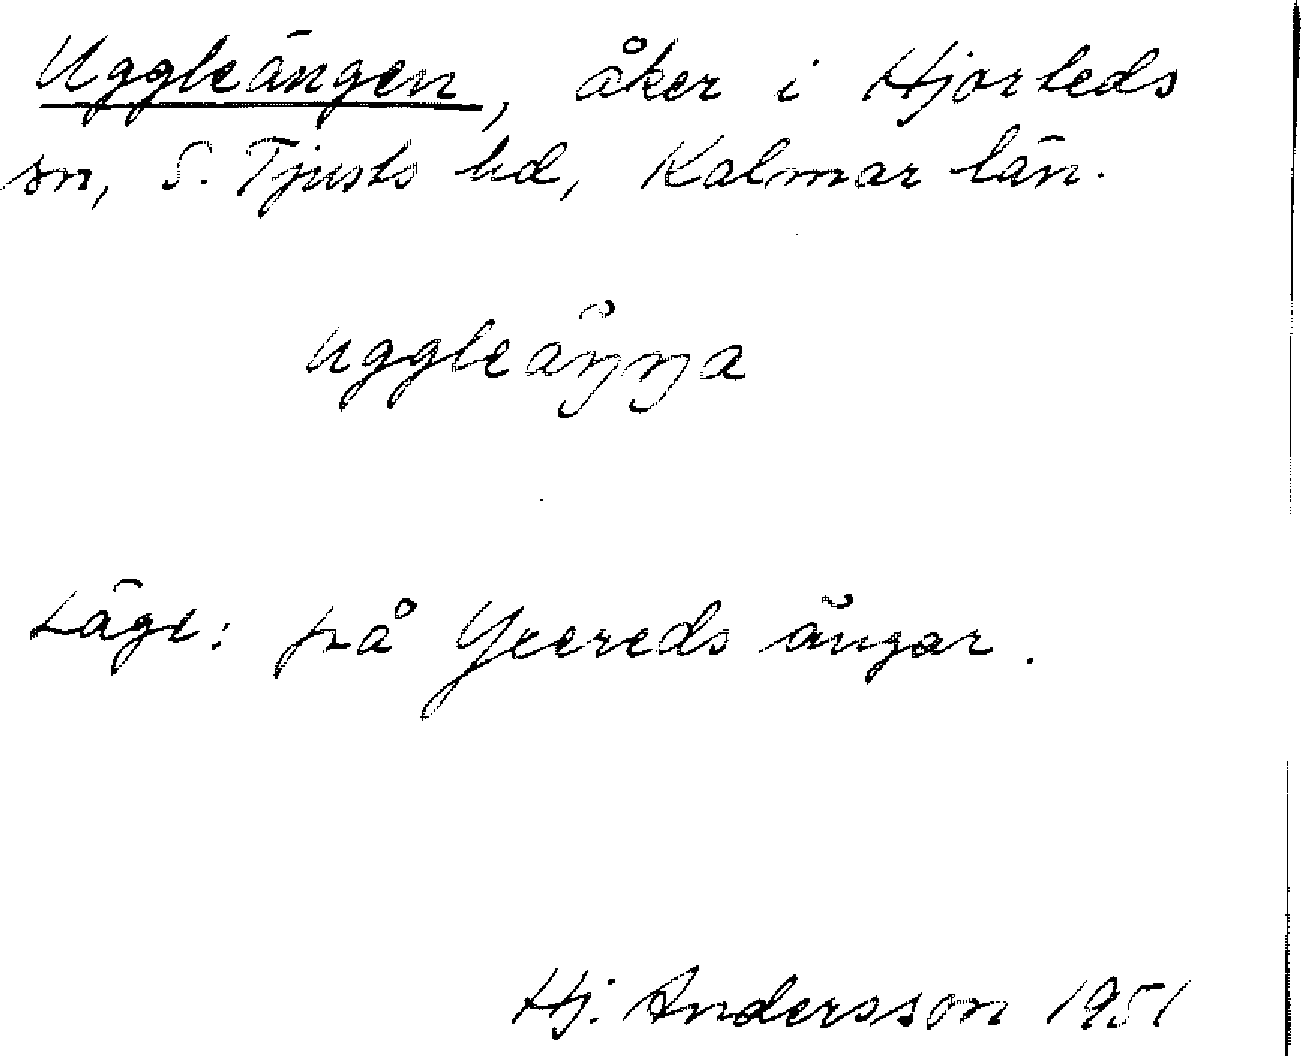 Uggleängen, åker i Hjorteds
sn, S. Tjusts hd, Kalmar län.
uggleäŋŋa
Läge: på Yxereds ängar.
Hj. Andersson 1951